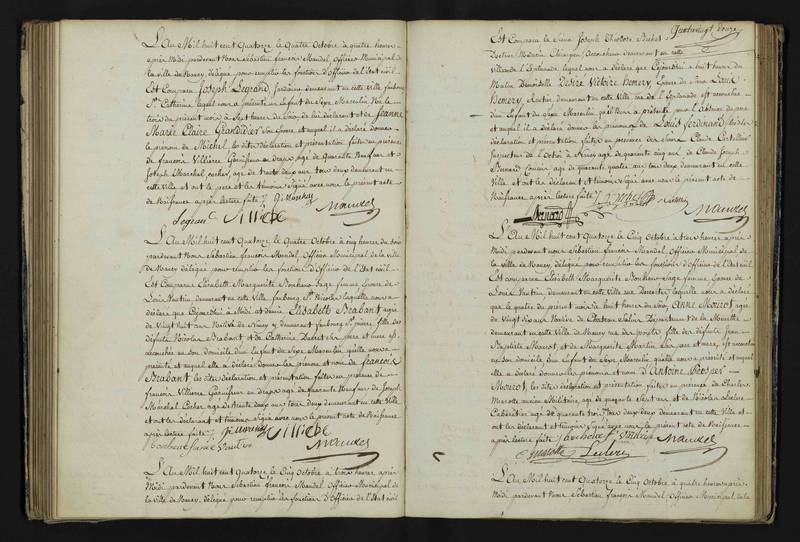 L'An Mil huit cent Quatorze le Quatre Octobre à quatre heures
après Midi pardevant Nous Sébastien françois Mandel, Officier Municipal de
la ville de Nancy, délégué pour remplir les fonctions d'Officier de l'Etat civil
Est Comparu Joseph Legrand, demeurant en cette ville faubourg
Ste Catherine lequel nous a présenté un Enfant du Sexe Masculin Né le
trois du présent mois à Sept heures du Soir de lui déclarant et de Jeanne
Marie Claire Grandidier Son Epouse et auquel il a déclaré donner
le prénom de Michel, les dites déclaration et présentation faites en présence
de françois Villière Garnisseur en draps agé de quarante Neuf ans et
Joseph Marchal, cocher, agé de trente deux ans tous deux demeurant en
cette Ville et ont le père et les témoins Signé avec nous le présent acte
de Naissance après lecture faite ./. J. Marchal
Legrand Villière Mandel
L'An Mil huit cent Quatorze le Quatre Octobre à cinq heures du Soir
pardevant Nous Sébastien françois Mandel, Officier Municipal de la ville
de Nancy délégué pour remplir les fonctions d'Officier de l'Etat civil
Est Comparue Elisabeth Marguerite Bonheur Sage femme Epouse de
Louis Vautrin demeurant en cette Ville faubourg St Nicolas laquelle nous a
déclaré que Cejourdhui à Midi et demi Elisabeth Brabant agée
de Vingt huit ans Native de Nancy y demeurant faubourg St pierre, fille des
défunts Nicolas Brabant et de Catherine ses père et mère est
accouchée en Son domicile d'un Enfant du Sexe Masculin qu'elle nous a
présenté et auquel elle a déclaré donner les prénoms et nom de françois
Brabant les dites déclaration et présentation faites en présence de
françois Villière Garnisseur en draps agé de quarante Neuf ans et Joseph
Marchal Cocher agé de trente deux ans tous deux demeurant en cette Ville
et ont les déclarant et témoins Signé avec nous le présent acte de Naissance
après lecture faite ./. J. Marchal Villière
bonheur fame Vautrin Mandel
L'An Mil huit cent Quatorze le Cinq Octobre à trois heures après
Midi pardevant Nous Sébastien françois Mandel Officier Municipal de
la ville de Nancy, délégué pour remplir les fonctions d'Officier de l'Etat civil
Quatre vingt douze
Est Comparu le Sieur Joseph Théodore
Docteur Médecin Chirurgien Accoucheur demeurant en cette
Ville rue de l'Esplanade lequel nous a déclaré que Cejourdhui à huit heures du
Matin Demoiselle Désirée Victoire Hemery Epouse du Sieur Louis
Hemery demeurant en cette Ville rue de l'Esplanade est accouchée
d'un Enfant du Sexe Masculin qu'il Nous a présenté pour l'absence du père
et auquel il a déclaré donner les prénoms de Louis Ferdinand les dites
déclaration et présentation faites en présence des Sieurs Claude
Inspecteur de l'Octroi à Nancy agé de quarante cinq ans et Claude Joseph
Bernard agé de quarante quatre ans tous deux demeurant en cette
Ville et ont les déclarant et témoins Signé avec nous le présent acte de
Naissance après lecture faite ./.
Bernard Mandel
L'An Mil huit cent Quatorze le Cinq Octobre à trois heures après
Midi pardevant Nous Sébastien François Mandel, Officier Municipal de
la Ville de Nancy, délégué pour remplir les fonctions d'Officier de l'Etat civil
Est comparue Elisabeth Marguerite Bonheur Sage femme Epouse de
Louis Vautrin, demeurant en cette Ville laquelle nous a déclaré
que le quatre du présent mois de huit heures du Soir, Anne Morot agée
de Vingt ans Native de Chateau Salins Département de la Meurthe
demeurant en cette Ville de Nancy fille de défunt Jean
Baptiste Morot, et de Marguerite Martin Ses père et mère, est accouchée
en Son domicile d'un Enfant du Sexe Masculin, qu'elle nous a présenté et auquel
elle a déclaré donner les prénoms et nom d'Antoine Prosper
Morot, les dites déclaration et présentation faites en présence de Charles
Marotte ancien Militaire, agé de quarante Sept ans et de Nicolas Leclerc
agé de quarante trois ans tous deux demeurant en cette Ville et
ont les déclarant et témoins Signé avec nous le présent acte de Naissance
après lecture faite ./. bonheur f. Vautrin Mandel
C marotte Leclerc
L'An Mil huit cent Quatorze le Cinq Octobre à quatre heures après
Midi, pardevant Nous Sébastien françois Mandel, Officier Municipal de la